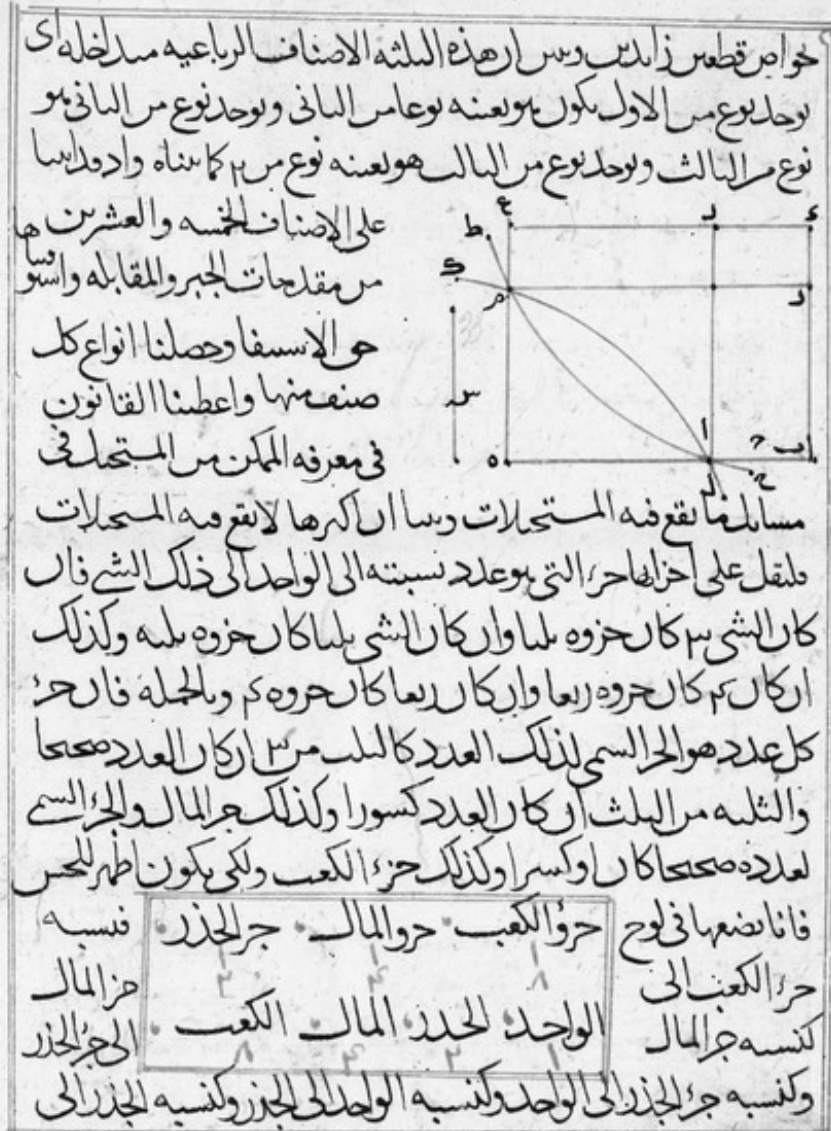 خواص قطعين زايدين وبين ان هذه الثلثه الاصناف الرباعيه متداخله اى
يوجد نوع من الاول يكون هو بعينه نوعا من الثانى ويوجد نوع من الثانى هو
نوع من الثالث ويوجد نوع من الثالث هو بعينه نوع من ٢ كما بيناه واذ قد اتينا
على الاصناف الخمسه والعشرين
من مقدمات الجبر والمقابله واستوفيناها
حق الاستيفا وحصلنا انواع كل
صنف منها واعطينا القانون
فى معرفه الممكن من المستحيل فى
مسايل ما يقع فيه المستحيلات وبينا ان اكثرها لا يقع فيه المستحيلات
فلنقل على اجزائها جزء التى هو عدد نسبته الى الواحد الى ذلك الشے فان
كان الشى ٣ كان جزوه ثلثا وان كان الشى ثلثا كان جزوه ثلثه وكذلك
ان كان ٤ كان جزوه ربعا وان كان ربعا كان جزوه ٤ وبالجمله فان جزء
كل عدد هو الجزء السمى لذلك العدد كالثلث من ٣ ان كان العدد صحيحا
والثلثه من الثلث ان كان العدد كسورا وكذلك جزء المال والجزء السمے
لعدده صحيحا كان او كسرا وكذلك جزء الكعب ولكى يكون اظهر للحس
فانا نضعها فى لوح
فنسبه
جزؤ الكعب جزو المال جزء الجذر
١
٨
١
٤
١
٢
جزء الكعب الى
جزء المال
الواحد الجذر المال الكعب
١ ٢ ٤ ٨
كنسبه جزء المال
الى جزء الجذر
وكنسبه جزء الجذر الى الواحد وكنسبه الواحد الى الجذر وكنسبه الجذر الى
ع
د
ء
ط
ك
م
ر
س
ه
ا
ب
ح
ل